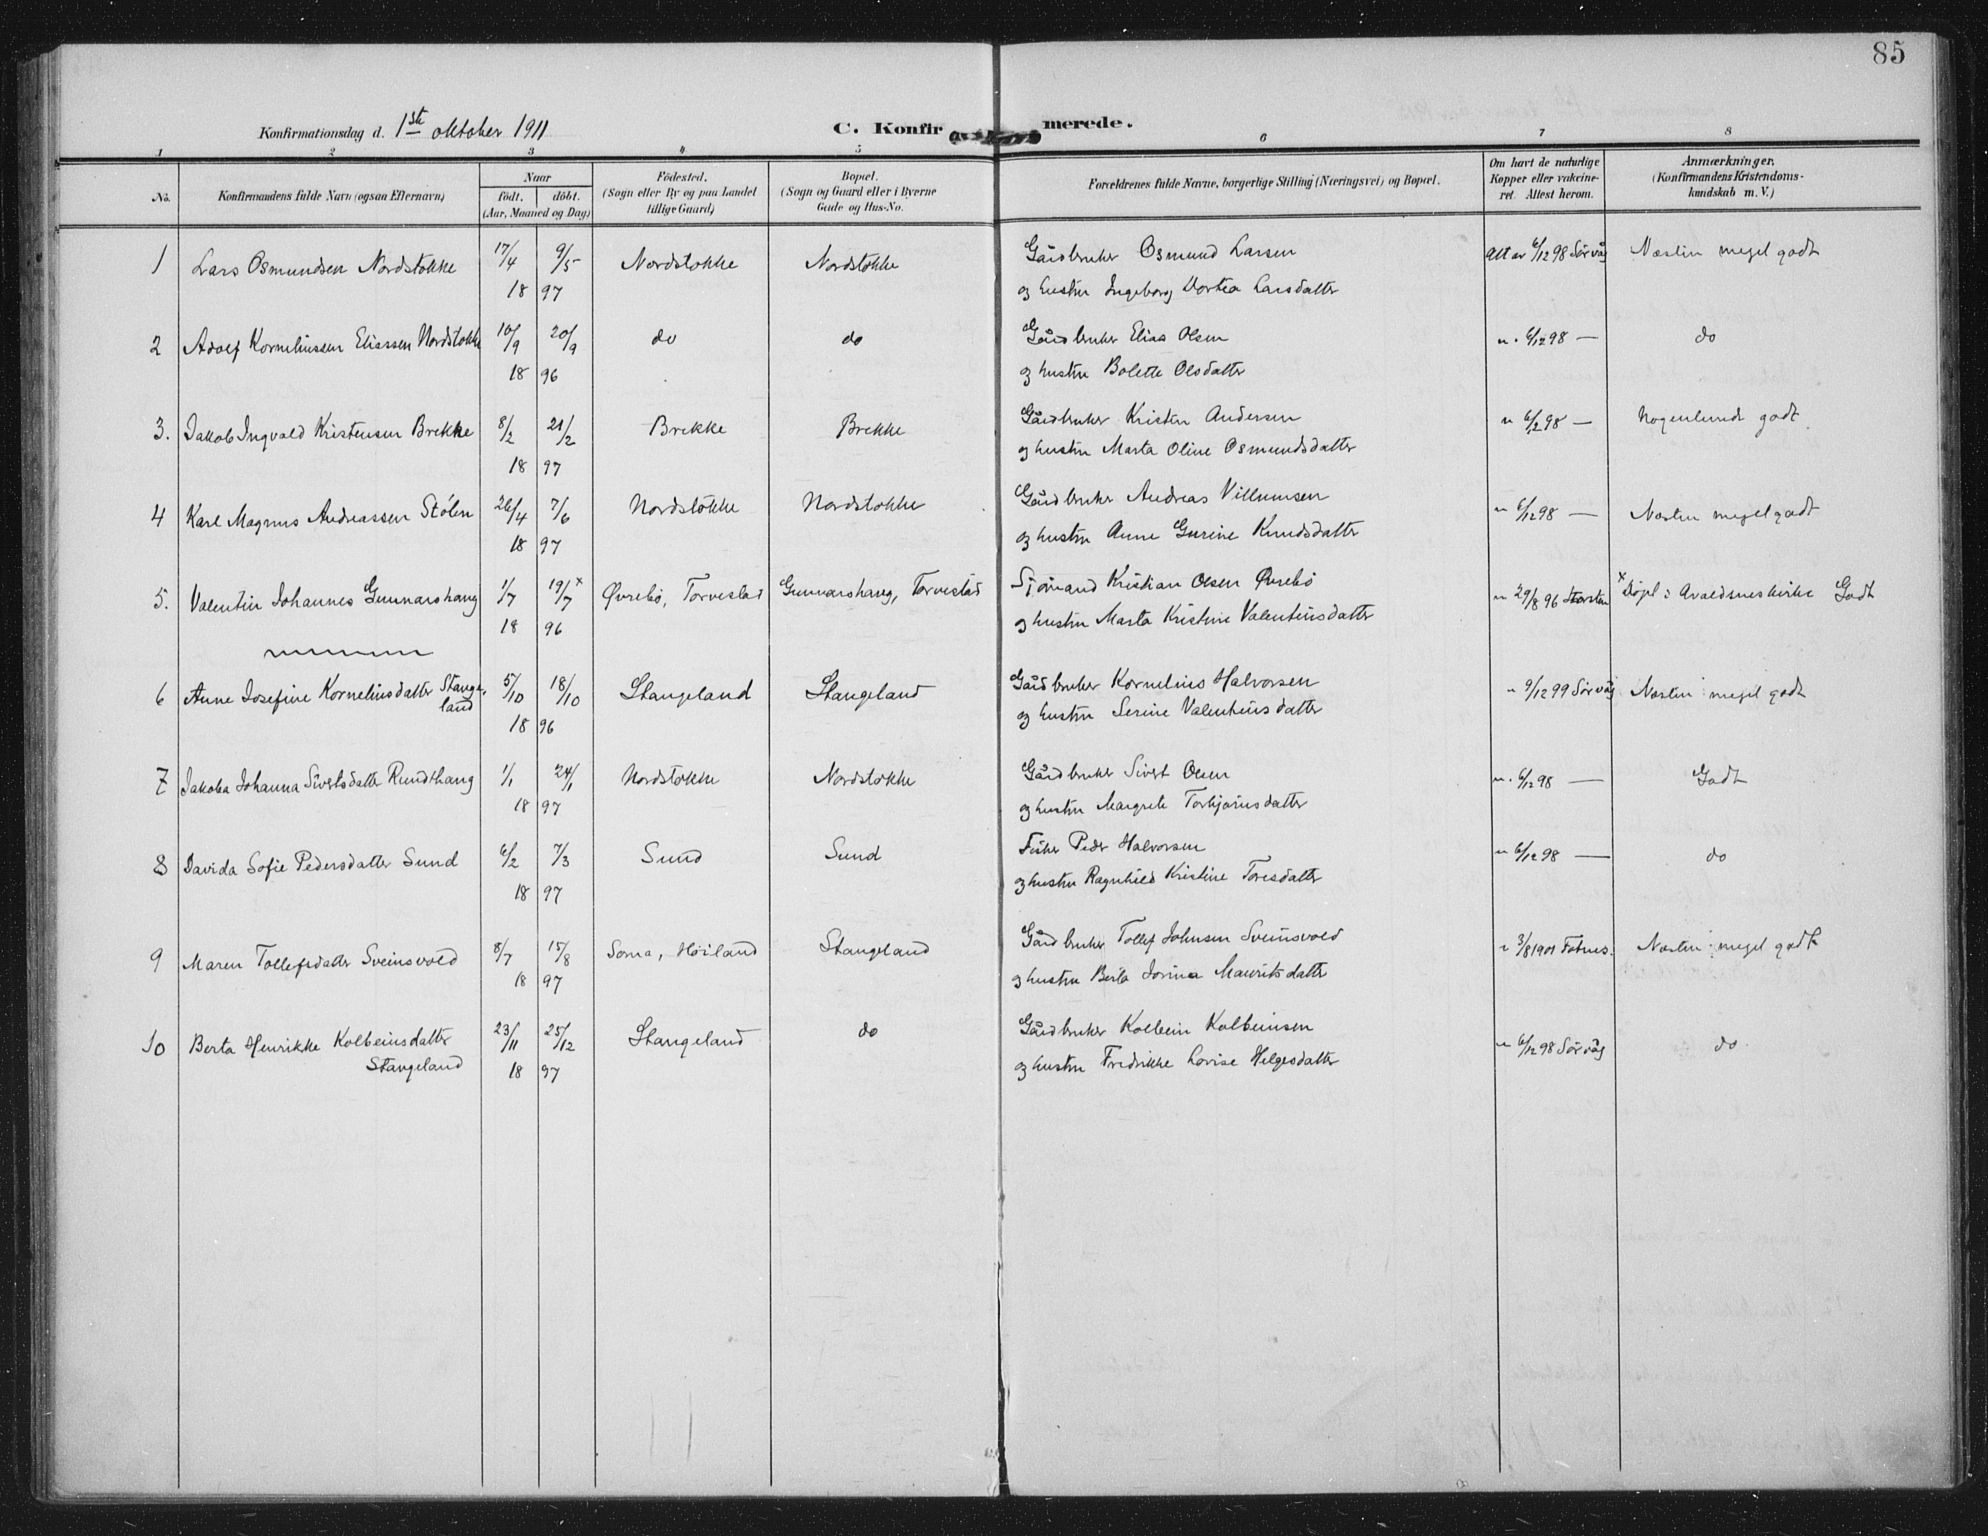 85
Konfirmationsdag d. 1ste oktober 1911 C. Konfirmerede.
1 2 3 4 5 6 7 8
No. Konfirmandens fulde Navn (ogsaa Efternavn) Naar födt. döbt. (Aar, Maaned og Dag) Födested. (Sogn eller By og paa Landet tillige Gaard) Bopæl. (Sogn og Gaard eller i Byerne Gade og Hus-No. Forældrenes fulde Navne, borgerlige Stilling (Næringsvei) og Bopæl. Om havt de naturlige Kopper eller vakcineret. Attest herom. Anmærkninger. (Konfirmandens Kristendomskundskab m. V.)
1 Lars Osmundsen Nordstokke 17/4 9/5 Nordstokke Nordstokke Gårdbruker Osmund Larsen Att av 6/12 98 Sörvåg Næsten meget godt
18 97 og hustru Ingeborg Dortea Larsdatter
2 Adolf Korneliussen Eliassen Nordstokke 10/9 20/9 do do Gårdbruker Elias Olsen " " 6/12 98 — do
18 96 og hustru Bolette Olsdatter
3. Jakob Ingvald Kristensen Brekke 8/2 21/2 Brekke Brekke Gårdbruker Kristen Andersen " 6/12 98 — Nogenlunde godt.
18 97 og hustru Marta Oline Osmundsdatter
4 Karl Magnus Andreassen Stølen 26/4 7/6 Nordstokke Nordstokke Gårdbruker Andreas Villumsen " 6/12 98 — Næsten meget godt
18 97 og hustru Anne Gurine Knudsdatter
5. Valentin Johannes Gunnarshaug 1/7 19/7 x Øvrebø, Torvestad Gunnarshaug, Torvestad Sjømand Kristian Olsen Øvrebø " 29/8 96 x Døpt i Avaldsnes kirke Godt
18 96 og hustru Marta Kristine Valentinsdatter
6 Anne Josefine Korneliusdatter Stangeland 5/10 18/10 Stangeland Stangeland Gårdbruker Kornelius Halvorsen " 9/12 99 Sörvåg Næsten meget godt
18 96 og hustru Serine Valentinsdatter
7 Jakoba Johanna Sivertsdatter Rundhaug 1/1 24/1 Nordstokke Nordstokke Gårdbruker Sivert Olsen " " 6/12 98 — Godt
18 97 og hustru Margrete Torbjørnsdatter
8 Davida Sofie Pedersdatter Sund 6/2 7/3 Sund Sund Fisker Peder Halvorsen " 6/12 98 — do
18 97 og hustru Ragnhild Kristine Toresdatter
9 Maren Tollefsdatter Sveinsvold 8/7 15/8 Soma, Høiland Stangeland Gårdbruker Tollef Johnsen Sveinsvold " 3/8 1901 Fotnes. Næsten meget godt
18 97 og hustru Berta Jorina Mauritsdatter
10 Berta Henrikke Kolbeinsdatter 23/11 25/12 Stangeland do Gårdbruker Kolbein Kolbeinsen " 6/12 98 Sörvåg do
Stangeland 18 97 og hustru Fredrikke Lovise Helgesdatter